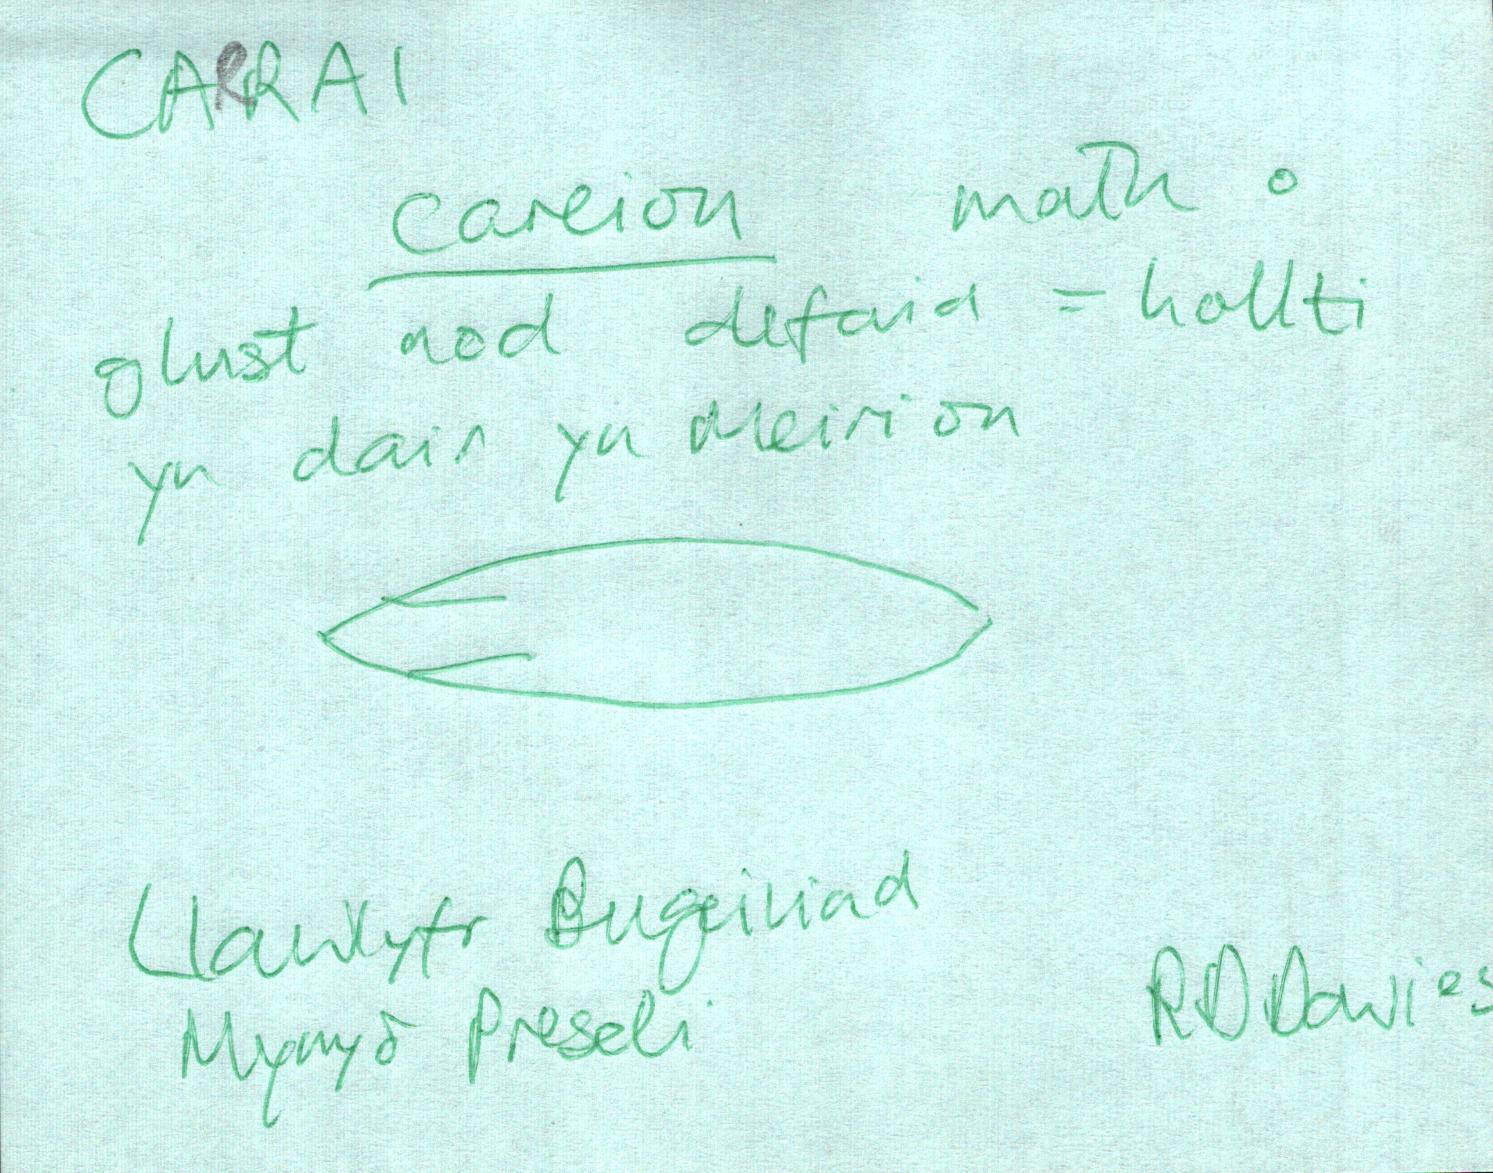 CARRAI
careion math o
glust nod defaid = hollti
yn dair yn Meirion
Llawlyfr Bugeiliaid
Mynyδ Preseli
R D Davies